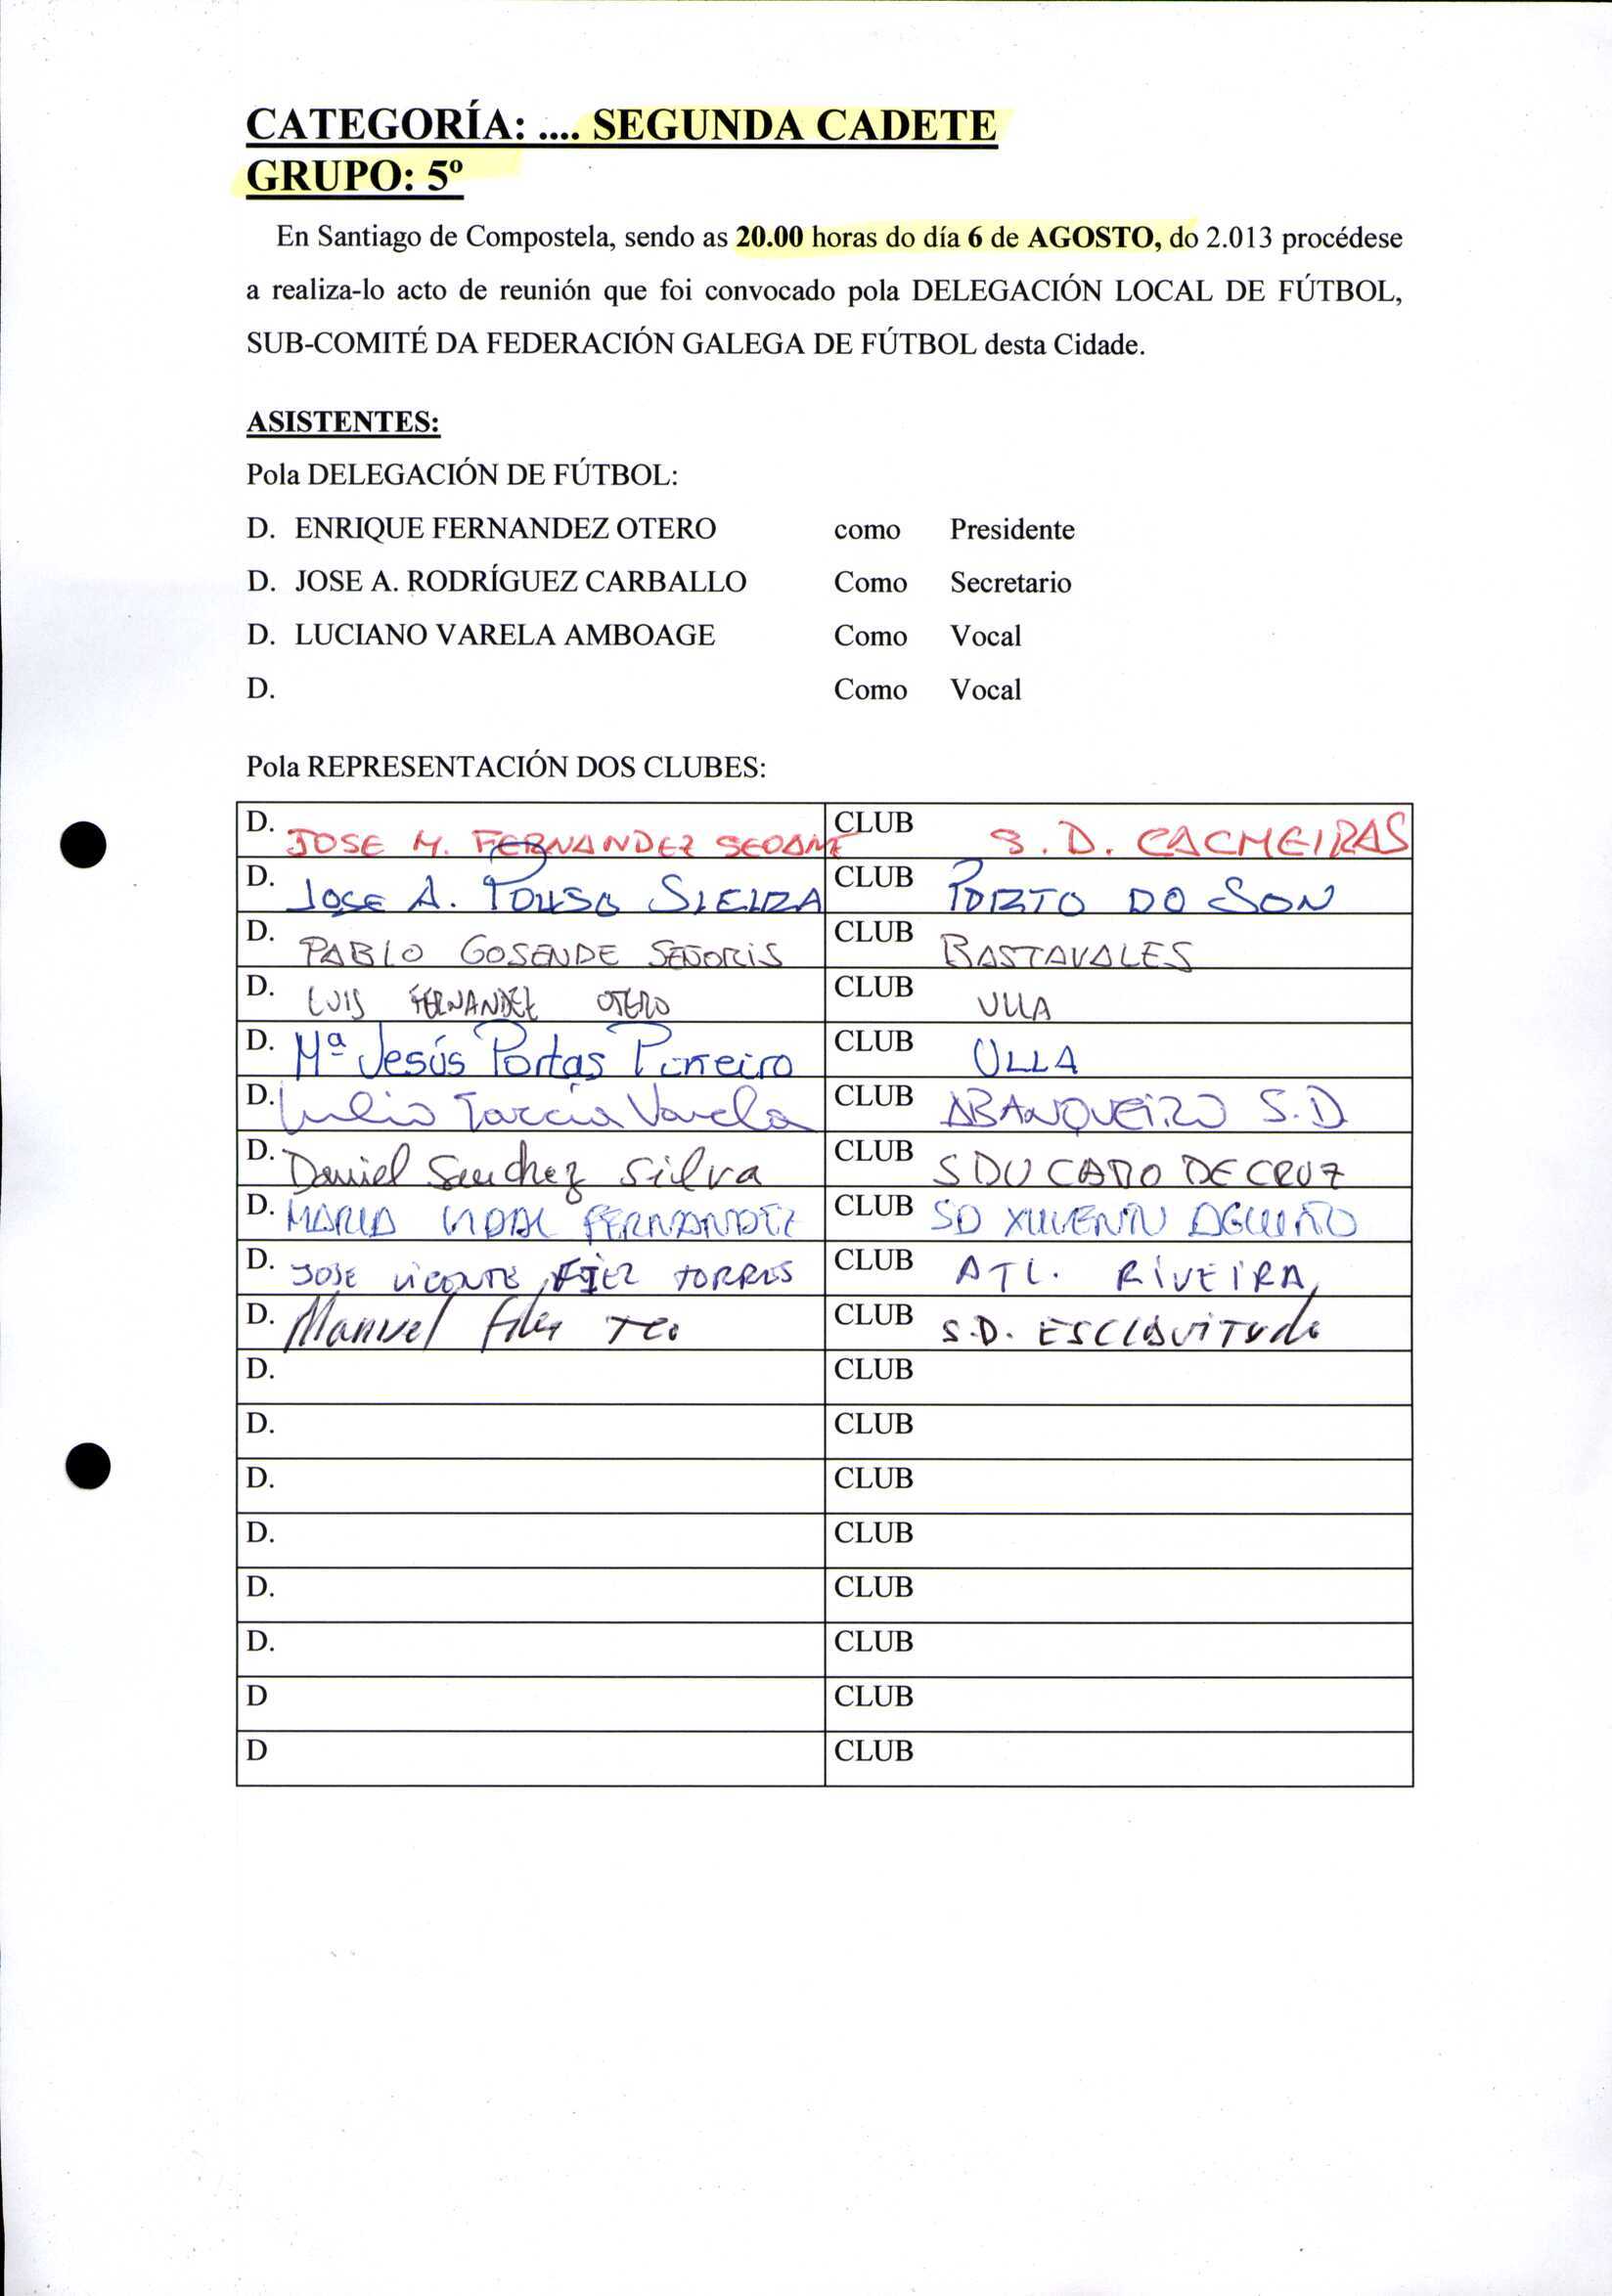 CATEGORÍA: .... SEGUNDA CADETE
GRUPO: 5º
En Santiago de Compostela, sendo as 20.00 horas do día 6 de AGOSTO, do 2.013 procédese
a realiza-lo acto de reunión que foi convocado pola DELEGACIÓN LOCAL DE FÚTBOL,
SUB-COMITÉ DA FEDERACIÓN GALEGA DE FÚTBOL desta Cidade.
ASISTENTES:
Pola DELEGACIÓN DE FÚTBOL:
D. ENRIQUE FERNANDEZ OTERO como Presidente
D. JOSE A. RODRÍGUEZ CARBALLO Como Secretario
D. LUCIANO VARELA AMBOAGE Como Vocal
D. Como Vocal
Pola REPRESENTACIÓN DOS CLUBES:
D. JOSE M. FERNANDEZ SEOANE CLUB S. D. CACHEIRAS
D. JOSE A. POUSO SIEIRA CLUB PORTO DO SON
D. PABLO GOSENDE SEÑORIS CLUB BASTAVALES
D. LUIS FERNANDEZ OTERO CLUB ULLA
D. Mª Jesús Portas Piñeiro CLUB ULLA
D. Julio García Varela CLUB ABANQUEIRO S.D
D. Daniel Sanchez Silva CLUB SDU CABO DE CRUZ
D. MARIA VIDAL FERNANDEZ CLUB SD XUVENTU AGUIÑO
D. JOSE VICENTE TORRES CLUB ATL. RIVEIRA
D. Manuel CLUB S.D. ESCLAVITUD
D. CLUB
D. CLUB
D. CLUB
D. CLUB
D. CLUB
D. CLUB
D CLUB
D CLUB